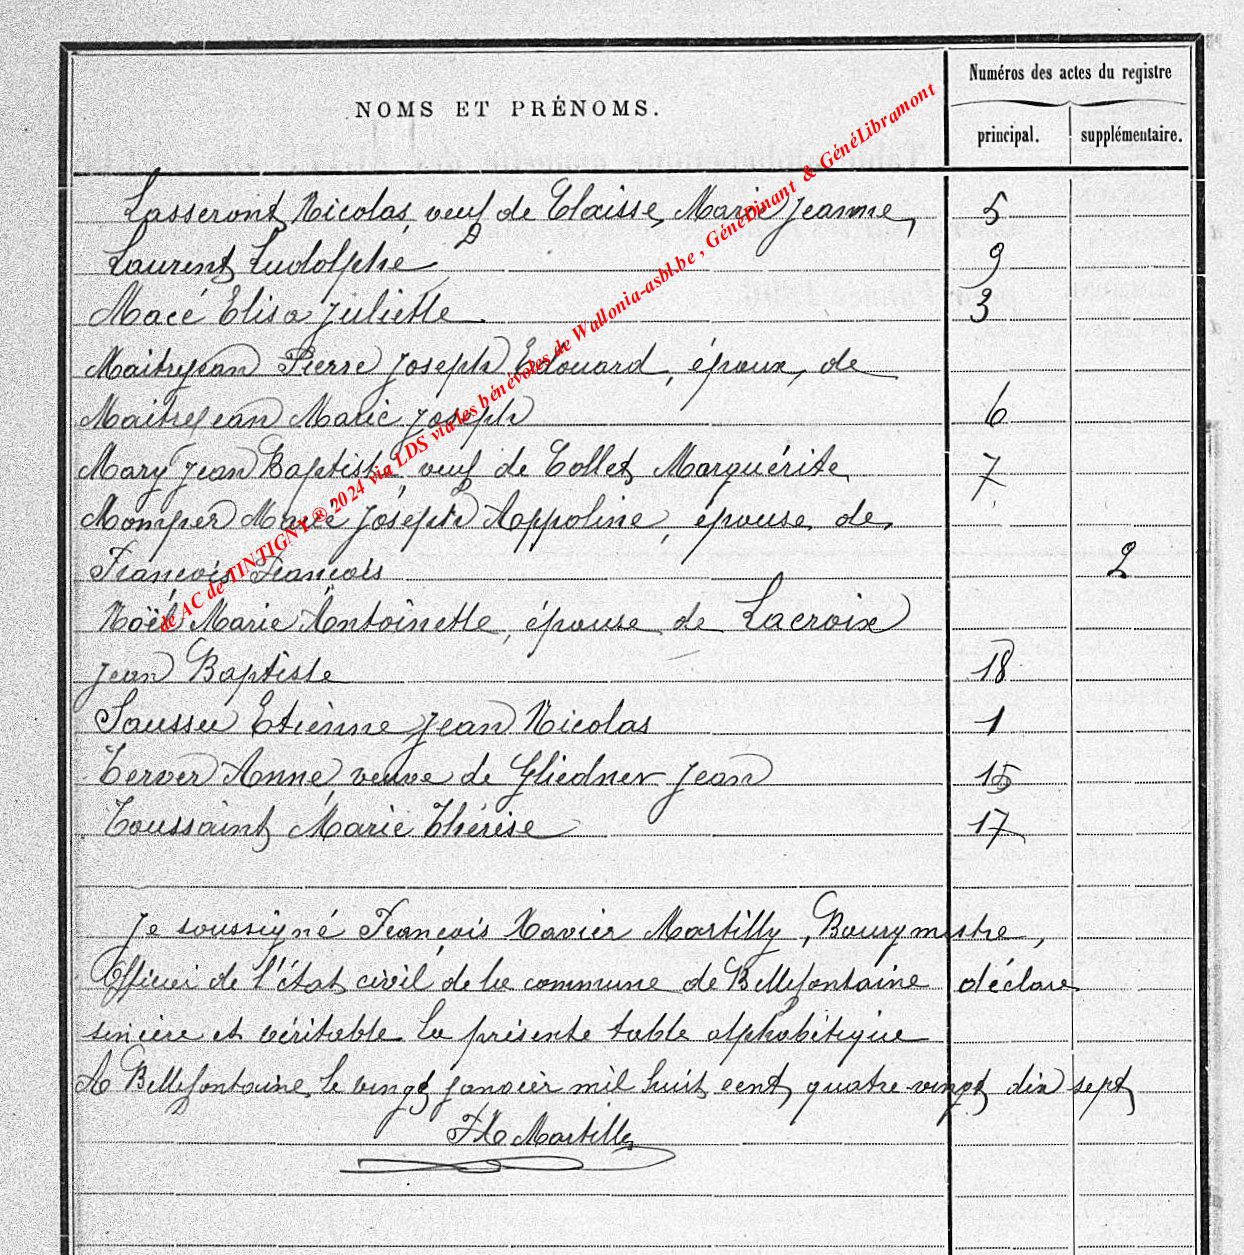 Numéros des actes du registre
NOMS ET PRÉNOMS.
principal. supplémentaire.
Lasseront Nicolas, veuf de Claisse, Marie Jeanne, 5
Laurent Ludolphe 9
Macé Elisa Juliette 3
Maitrejean Pierre Joseph Edouard, époux, de
Maitrejean Marie Joseph 6
Mary Jean Baptiste, veuf de Collet Marguérite 7
Momper Marie Joseph Appoline, épouse de
François François 2
Noël Marie Antoinette, épouse de Lacroix
Jean Baptiste 18
Sausseu Etienne Jean Nicolas 1
Terver Anne, veuve de Gliedner Jean 15
Toussaint Marie Thérèse 17
Je soussigné François Xavier Martilly, Bourgmestre,
Officier de l'état civil de la commune de Bellefontaine déclare
sincère et véritable la présente table alphabétique
A Bellefontaine, le vingt janvier mil huit cent quatre vingt dix sept
FX Martilly
de AC de TINTIGNY ® 2024 via LDS via les bénévoles de Wallonia-asbl.be , GénéDinant & GénéLibramont